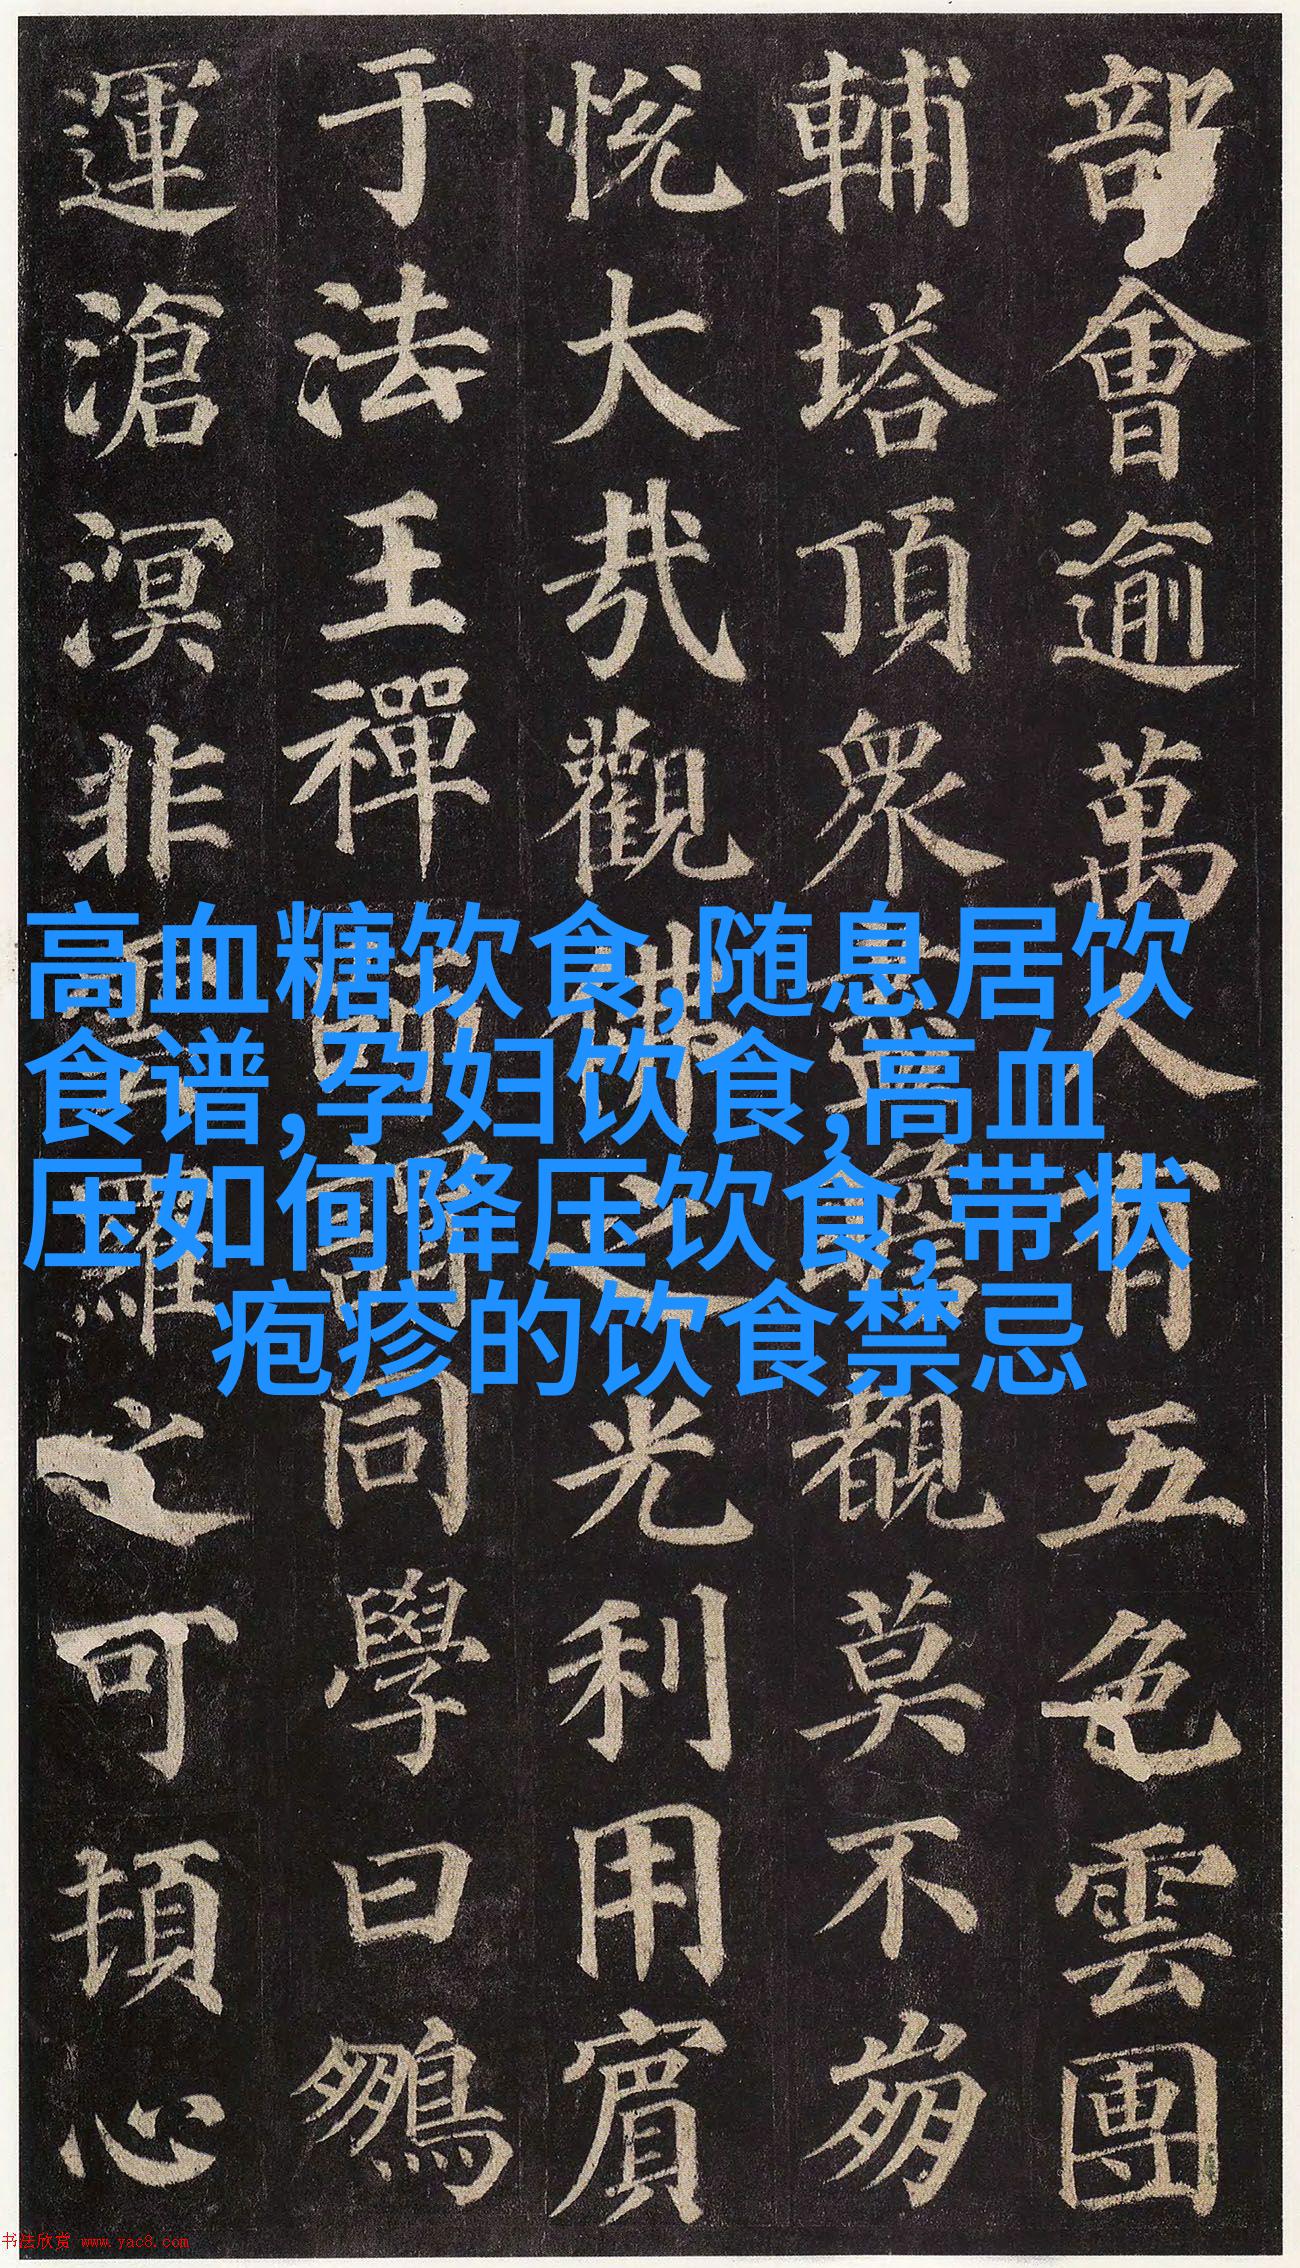 部會逾萬人有五色雲團
輔塔頂眾盡瞻覩莫不崩
悅大哉觀佛之光利用賓
于法王禪師謂同學曰鵬
運滄溟非雲羅之可頓心
高血糖饮食,随息居饮
食谱,孕妇饮食,高血
压如何降压饮食,带状
疱疹的饮食禁忌
书法欣赏 www.yac8.com